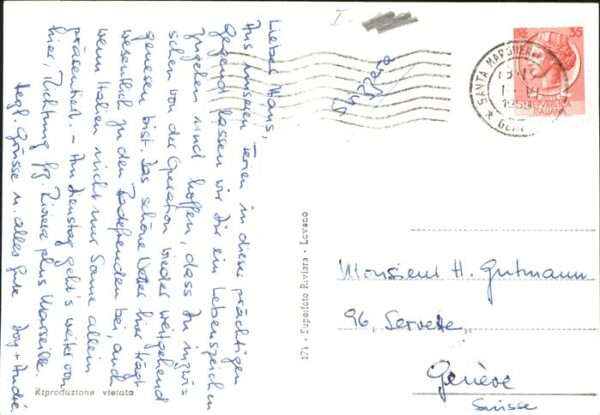 Lieber Hans,
Aus unseren Ferien in dieser prächtigen
Gegend lassen wir Dir ein Lebenszeichen
zugehen und hoffen, dass Du inzwi-
schen von der Operation wieder weitgehend
genesen bist. Das schöne Wetter hier trägt
wesentlich zu den Badefreuden bei, auch
wenn Italien nicht nur Sonne allein
präsentiert. - Am Dienstag geht's weiter von
hier, Richtung frz. Riviera plus Marseille.
Hzgl. Grüsse u. alles Gute und André
Riproduzione vietata
174 - Superfoto Riviera - Lavano
I -
SANTA MARGHERITA
195
GEN
35
Monsieur H. Gutmann
96, Servette,
Genève
Suisse